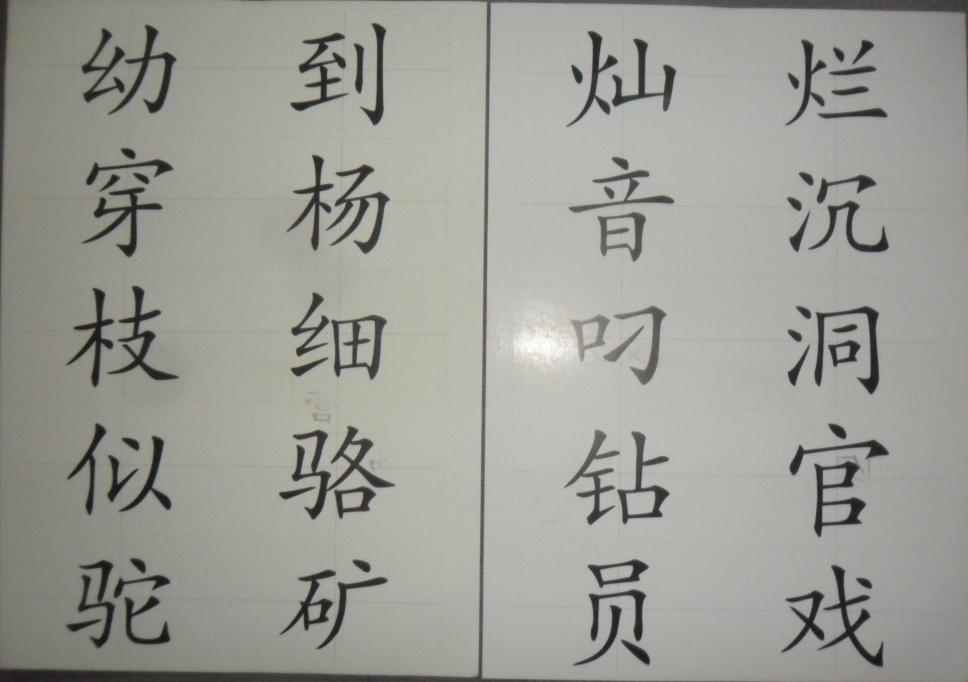 幼 到
穿 杨
枝 细
似 骆
驼 矿
灿 烂
音 沉
叼 洞
钻 官
员 戏